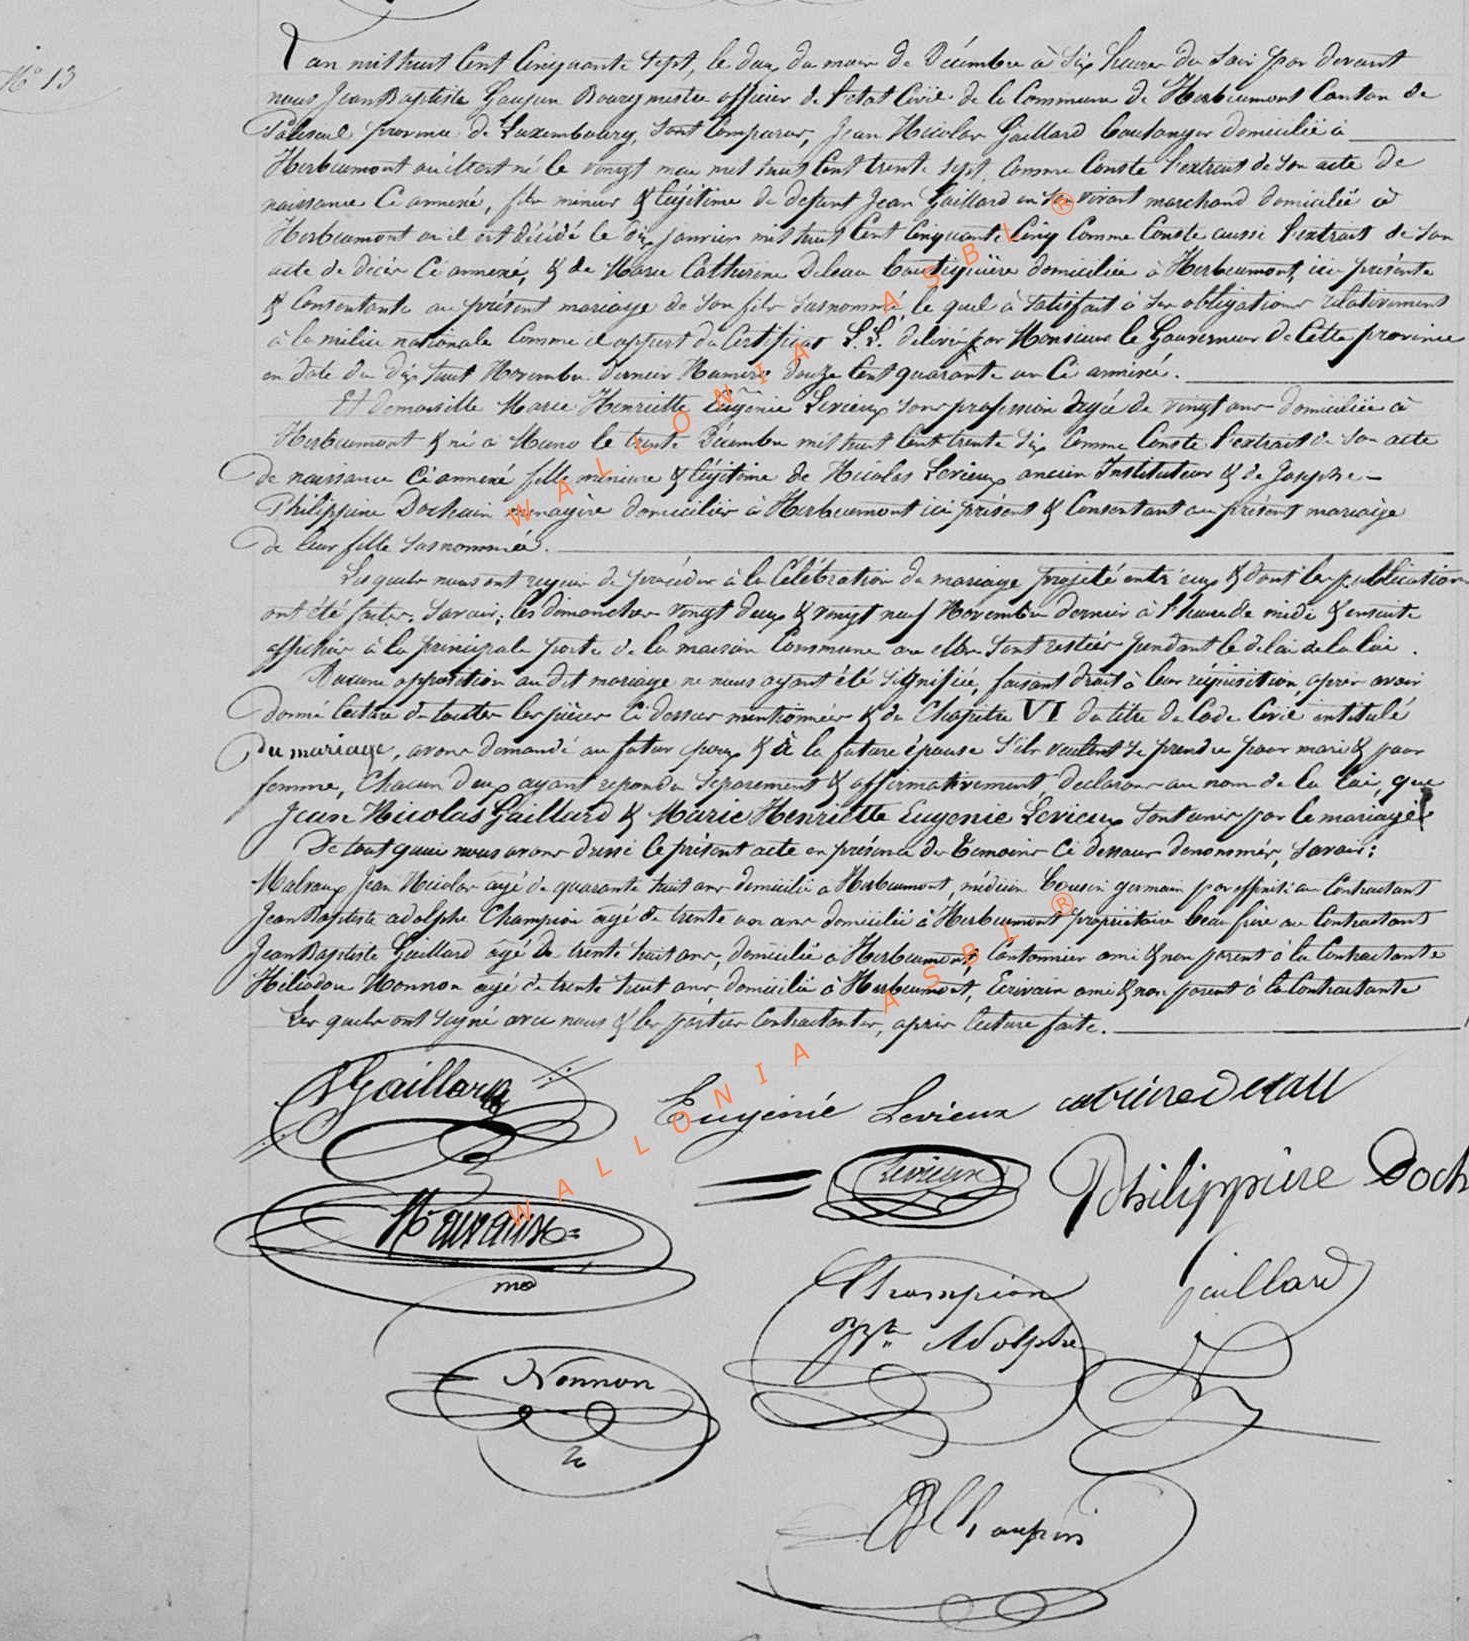 N° 13
L'an mil huit Cent Cinquante Sept, le deux du mois de Décembre à Six heures du Soir par devant
nous Jean Baptiste Bourgmestre officier de l'état Civil de la Commune de Herbeumont Canton de
Paliseul province de Luxembourg, sont Comparus, Jean Nicolas Gaillard boulanger domicilié à
Herbeumont où il est né le vingt mai mil huit Cent trente sept Comme Conste l'extrait de son acte de
naissance Ci annexé, fils mineur & légitime de defunt Jean Gaillard en son vivant marchand domicilié à
Herbeumont où il est décédé le dix janvier mil huit Cent Cinquante Cinq Comme Conste aussi l'extrait de son
acte de décès Ci annexé, & de Marie Catherine Deleau boutiquière domiciliée à Herbeumont, ici présente
& Consentante au présent mariage de son fils susnommé, le quel à satisfait à ses obligations relativement
à la milice nationale Comme il appert du Certificat L.L. delivré par Monsieur le Gouverneur de Cette province
en date du dix huit Novembre dernier Numéro douze Cent quarante un Ci annexé.
Et demoiselle Marie Henriette Eugénie Levieux sans profession âgée de vingt ans domiciliée à
Herbeumont & né à Muno le trente Décembre mil huit Cent trente Six Comme Conste l'extrait de son acte
de naissance Ci annexé fille mineure & légitime de Nicolas Levieux ancien Instituteur & de Josephe
Philippine Dochain ménagère domiciliés à Herbeumont ici présent & Consentant au présent mariage
de leur fille susnommée.
Les quels nous ont requis de procéder à la Célébration du mariage projeté entr'eux & dont les publications
ont été faites, Savoir; les dimanches vingt deux & vingt neuf Novembre dernier à l'heure de midi & ensuite
affichés à la principale porte de la maison Commune où elles sont restées pendant le délai de la loi.
Aucune opposition au dit mariage ne nous ayant été signifiée, faisant droit à leur réquisition, après avoir
donné lecture de toutes les pièces Ci dessus mentionnées & du Chapitre VI du titre du Code Civil intitulé
Du mariage, avons demandé au futur epoux & à la future épouse s'ils veulent se prendre pour mari & pour
femme, Chacun d'eux ayant repondu Séparement & affirmativement, déclarons au nom de la loi, que
Jean Nicolas Gaillard & Marie Henriette Eugenie Levieux Sont unis par le mariage
De tout quoi nous avons dressé le présent acte en présence des témoins Ci dessous denommés, Savoir:
Jean Nicolas agé de quarante huit ans domicilié à Herbeumont, médecin Cousin germain par affinité au Contractant
Jean Baptiste adolphe Champion agé de trente ans domicilié à Herbeumont propriétaire beau frère au Contractant
Jean Baptiste Gaillard agé de trente huit ans, domicilié à Herbeumont, Cantonnier ami & non parent à la Contractante
Héliodore Nonnon agé de trente huit ans domicilié à Herbeumont, Ecrivain ami & non parent à la Contractante
Les quels ont signé avec nous & les parties Contractantes, après lecture faite.
Gaillard
Eugénie Levieux
Levieux
Philippine Doch
Champion
Adolphe
Gaillard
Nonnon
WALLONIA ASBL ®
WALLONIA ASBL ®